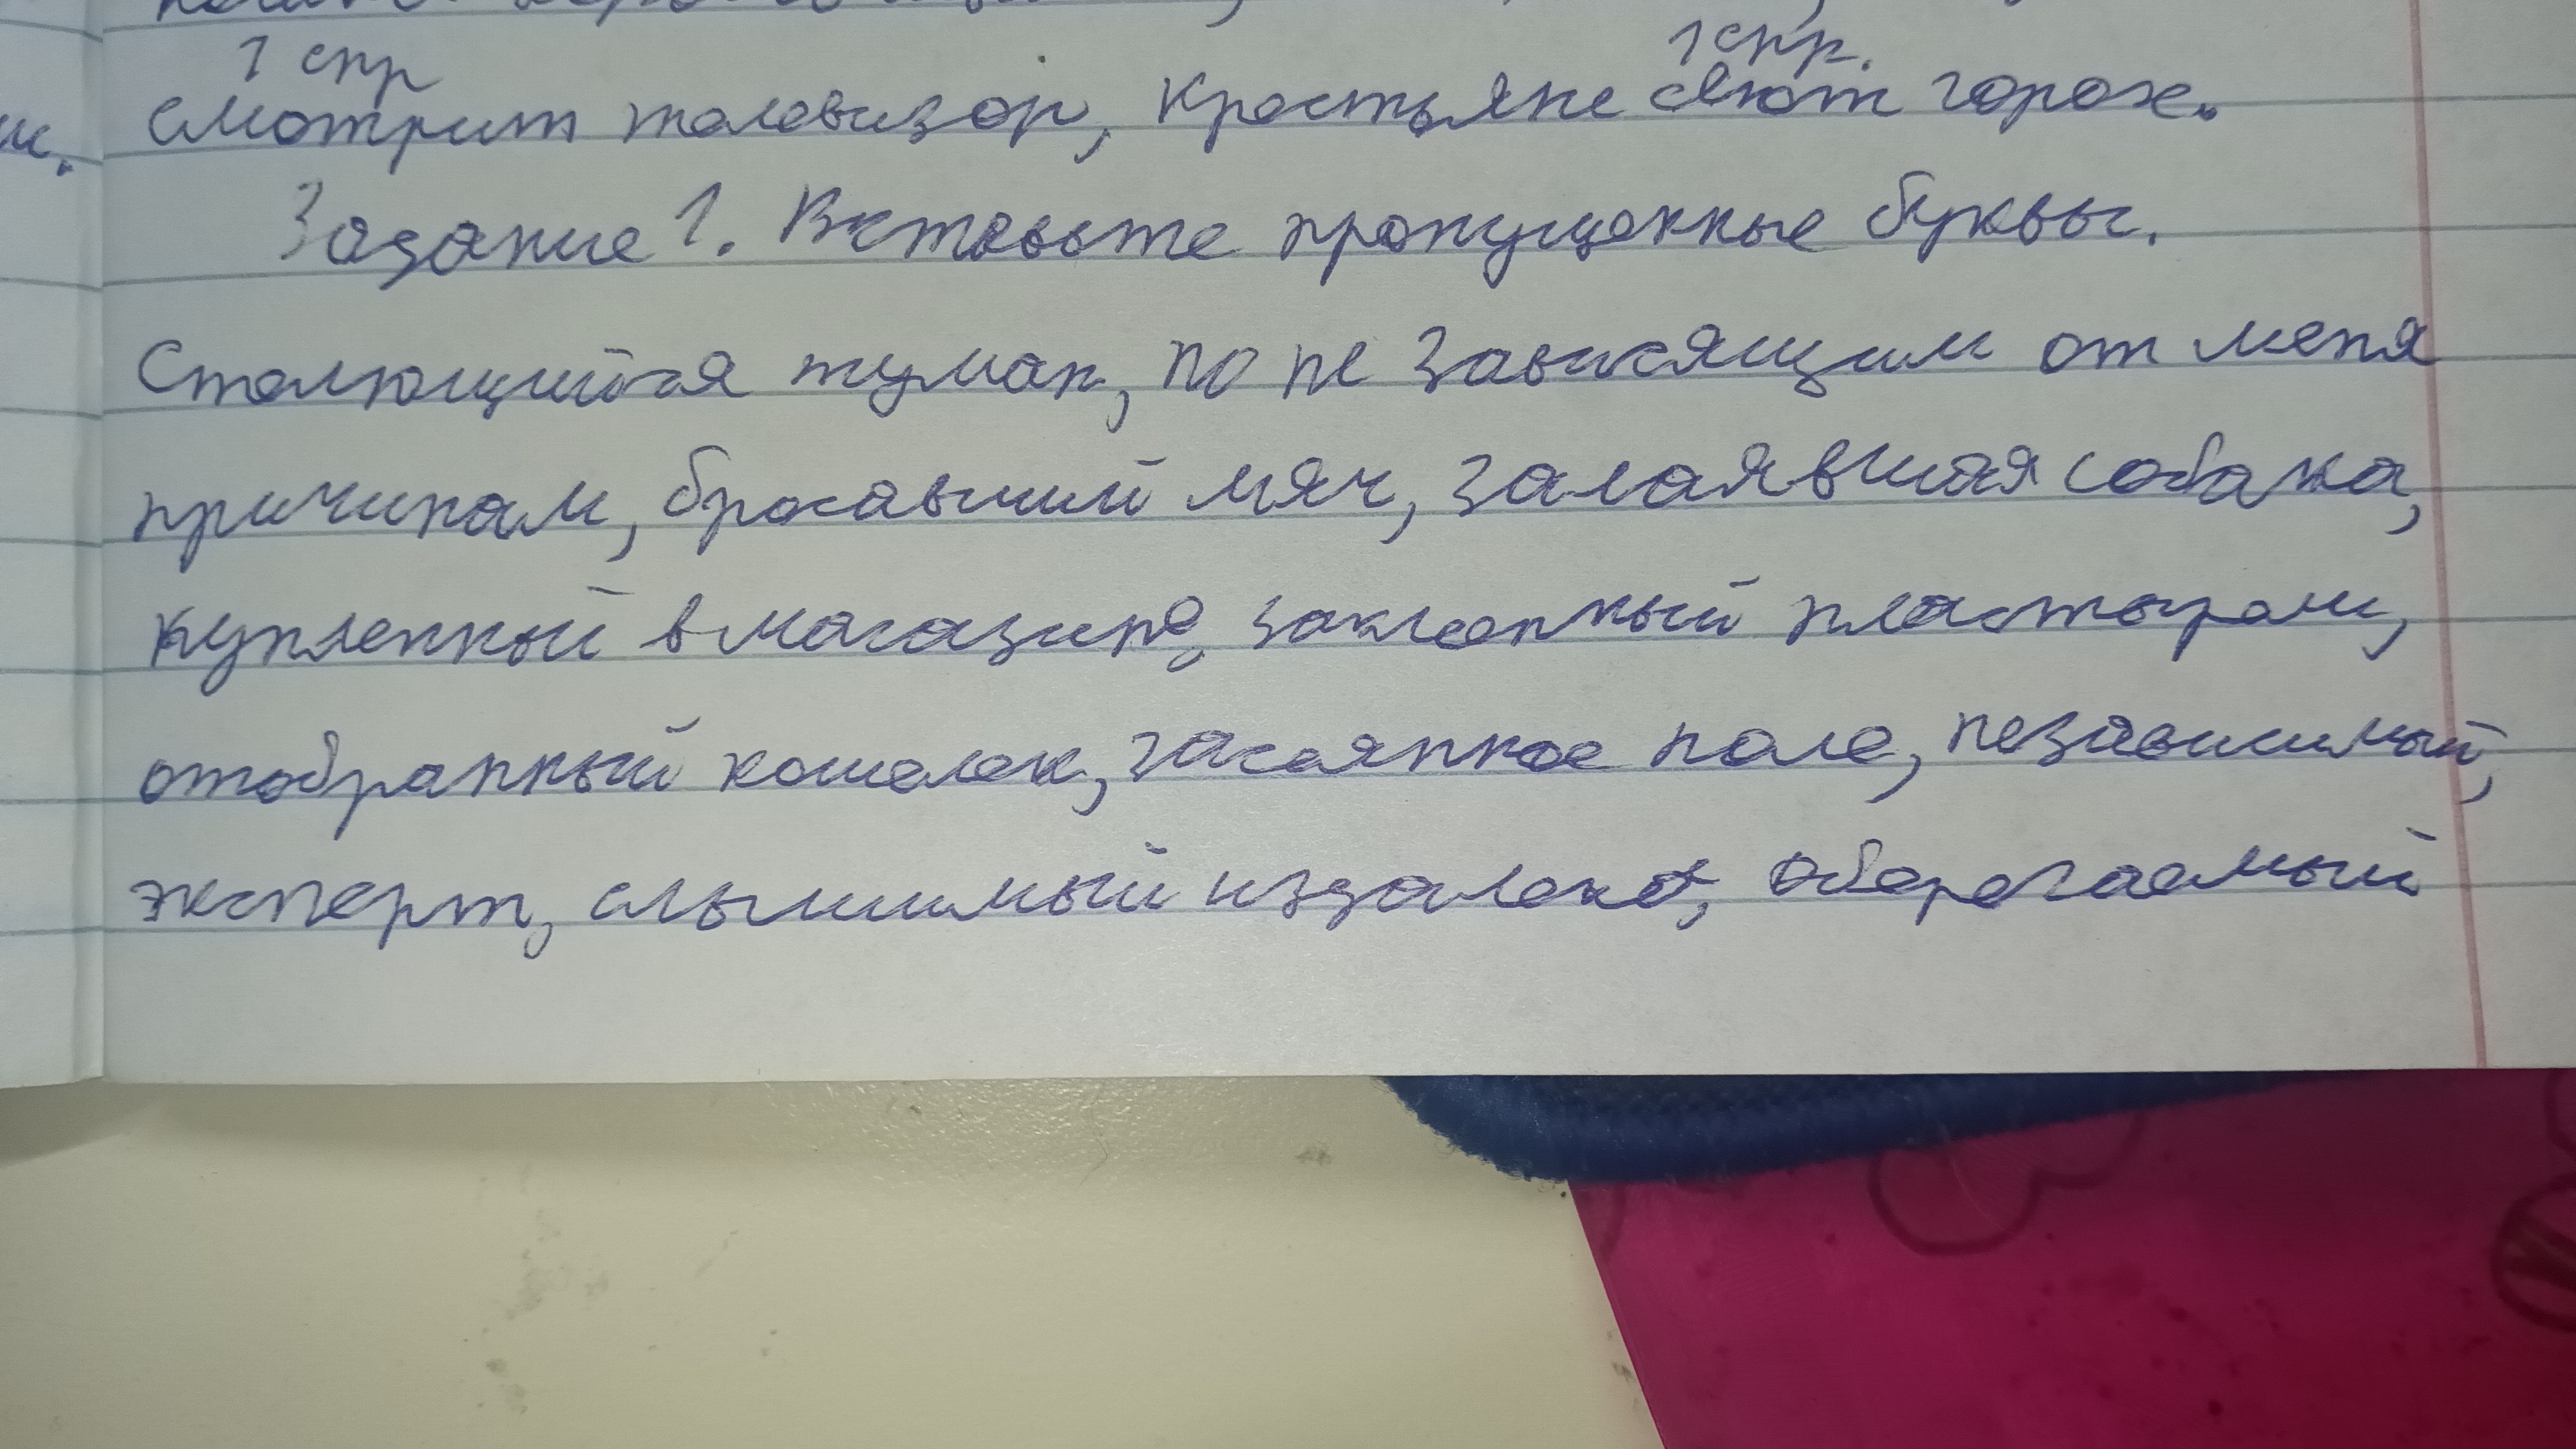 1 спр 1 спр.
смотрит телевизор, крестьяне сеют горох.
Задание 1. Вставьте пропущенные буквы.
Стелющийся туман, по не зависящим от меня
причинам, бросавший мяч, залаявшая собака,
купленный в магазине, заклеенный пластырем,
отобранный кошелек, засеянное поле, независимый,
эксперт, слышимый издалека, оберегаемый